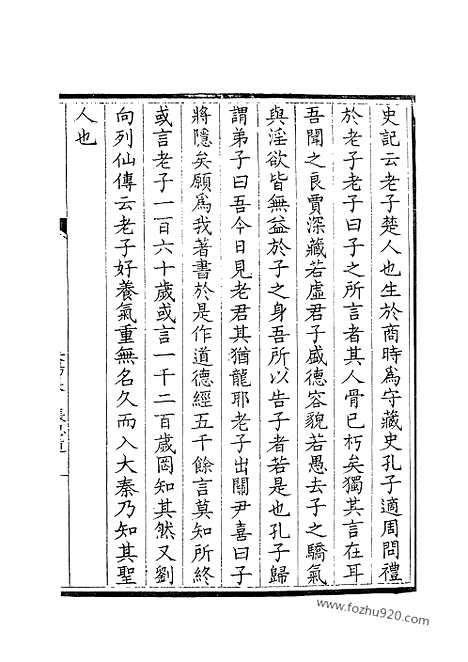 史記云老子楚人也生於商時為守藏史孔子適周問禮
於老子老子曰子之所言者其人骨已朽矣獨其言在耳
吾聞之良賈深藏若虛君子盛德容貌若愚去子之驕氣
與淫欲皆無益於子之身吾所以告子者若是也孔子歸
謂弟子曰吾今日見老君其猶龍耶老子出關尹喜曰子
將隱矣願為我著書於是作道德經五千餘言莫知所終
或言老子一百六十歲或言一千二百歲罔知其然又劉
向列仙傳云老子好養氣重無名久而入大秦乃知其聖
人也
www.fozhu920.com